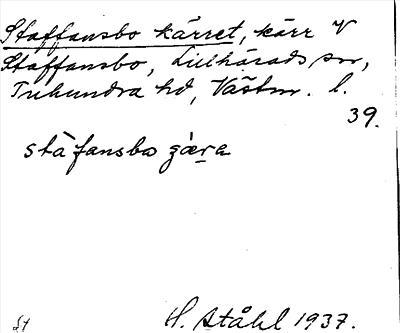 Staffansbo kärret, kärr V
Staffansbo, Lillhärads sn,
Tuhundra hd, Västm. l.
39.
stàfansbo ɡæ̀ra
H. Ståhl 1937.
St